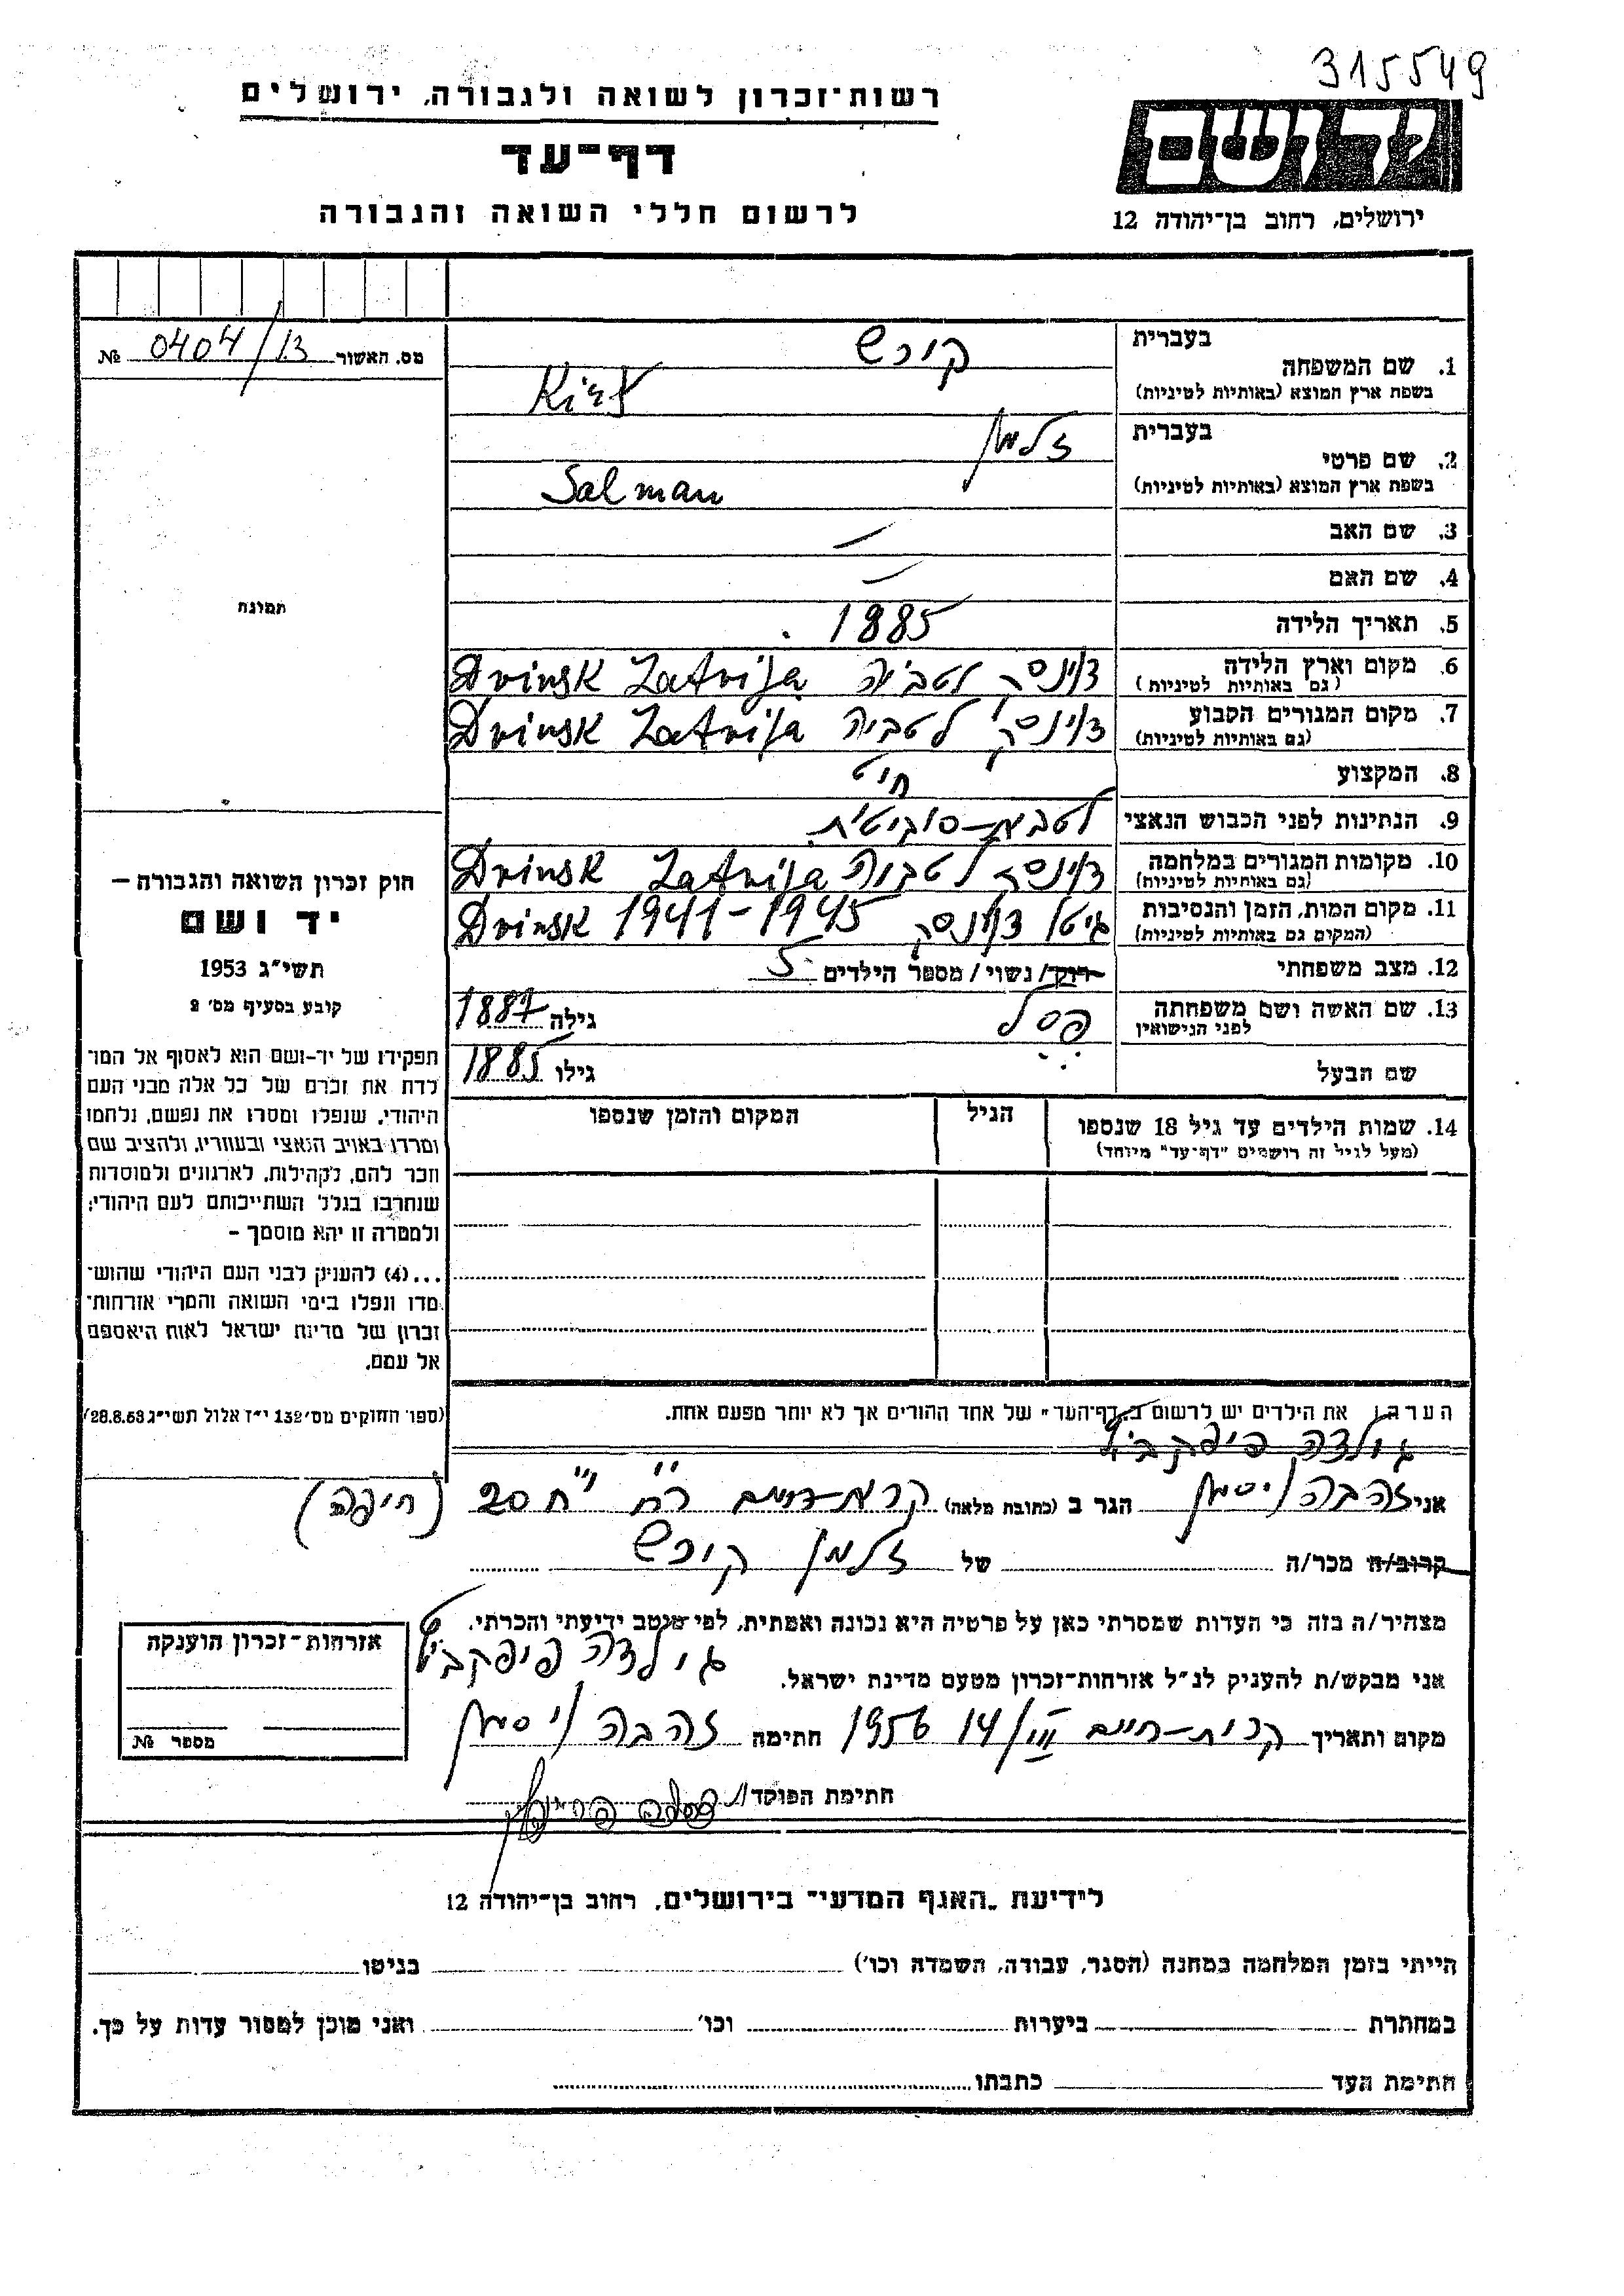 315549
רשות־זכרון לשואה ולגבורה, ירושלים
דף־עד
לרשום חללי השואה והגבורה
יד ושם
ירושלים, רחוב בן־יהודה 12
מס. האשור 0404/13 №
תמונה
חוק זכרון השואה והגבורה –
יד ושם
תשי״ג 1953
קובע בסעיף מס׳ 2
תפקידו של יד-ושם הוא לאסוף אל המו־
לדת את זכרם של כל אלה מבני העם
היהודי, שנפלו ומסרו את נפשם, נלחמו
ומרדו באויב הנאצי ובעוזריו, ולהציב שם
וזכר להם, לקהילות, לארגונים ולמוסדות
שנחרבו בגלל השתייכותם לעם היהודי;
ולמטרה זו יהא מוסמך –
...(4) להעניק לבני העם היהודי שהוש־
מדו ונפלו בימי השואה והמרי אזרחות־
זכרון של מדינת ישראל לאות היאספם
אל עמם.
(ספר החוקים מס׳ 132 י״ז אלול תשי״ג 28.8.53)
בעברית קורש
1. שם המשפחה
בשפת ארץ המוצא (באותיות לטיניות)
בעברית זלמן
2. שם פרטי
בשפת ארץ המוצא (באותיות לטיניות) Salman
3. שם האב —
4. שם האם —
5. תאריך הלידה 1885
6. מקום וארץ הלידה דווינסק לטביה Dvinsk Latvija
(גם באותיות לטיניות)
7. מקום המגורים הקבוע דווינסק לטביה Dvinsk Latvija
(גם באותיות לטיניות)
8. המקצוע חיט
9. הנתינות לפני הכבוש הנאצי לטבית-סוביטית
10. מקומות המגורים במלחמה דווינסק לטביה Dvinsk Latvija
(גם באותיות לטיניות)
11. מקום המות, הזמן והנסיבות גיטו דווינסק Dvinsk 1941-1945
(המקום גם באותיות לטיניות)
12. מצב משפחתי רווק/ נשוי/ מספר הילדים 5
13. שם האשה ושם משפחתה פסל גילה 1887
לפני הנישואין
שם הבעל גילו 1885
14. שמות הילדים עד גיל 18 שנספו הגיל המקום והזמן שנספו
(מעל לגיל זה רושמים "דף־עד" מיוחד)
הערה: את הילדים יש לרשום ב„דף־העד" של אחד ההורים אך לא יותר מפעם אחת.
גולדה
אני זהבה ויסמן הגר ב (כתובת מלאה) קרית-חיים רח׳ 20 (חיפה)
קרוב/ה מכר/ה של זלמן קורש
מצהיר/ה בזה כי העדות שמסרתי כאן על פרטיה היא נכונה ואמתית, לפי מיטב ידיעתי והכרתי.
גולדה
אני מבקש/ת להעניק לנ״ל אזרחות־זכרון מטעם מדינת ישראל.
מקום ותאריך קרית-חיים 14/III 1956 חתימה זהבה ויסמן
חתימת הפוקד/ת
אזרחות־זכרון הוענקה
מספר №
לידיעת „האגף המדעי" בירושלים, רחוב בן־יהודה 12
הייתי בזמן המלחמה במחנה (הסגר, עבודה, השמדה וכו׳) בגיטו
במחתרת ביערות וכו׳ ואני מוכן למסור עדות על כך.
חתימת העד כתבתו